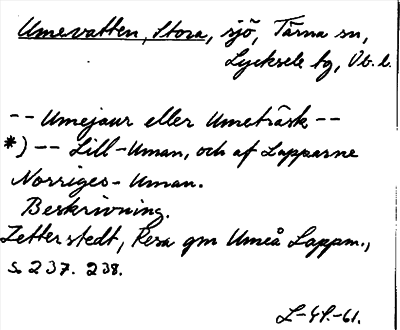 Umevatten, Stora, sjö, Tärna sn,
Lycksele lg, Vb. l.
-- Umejaur eller Umeträsk --
*) -- Lill-Uman, och af Lapparne
Norriges-Uman.
Beskrivning.
Zetterstedt, Resa gm Umeå Lappm.,
s. 237. 238.